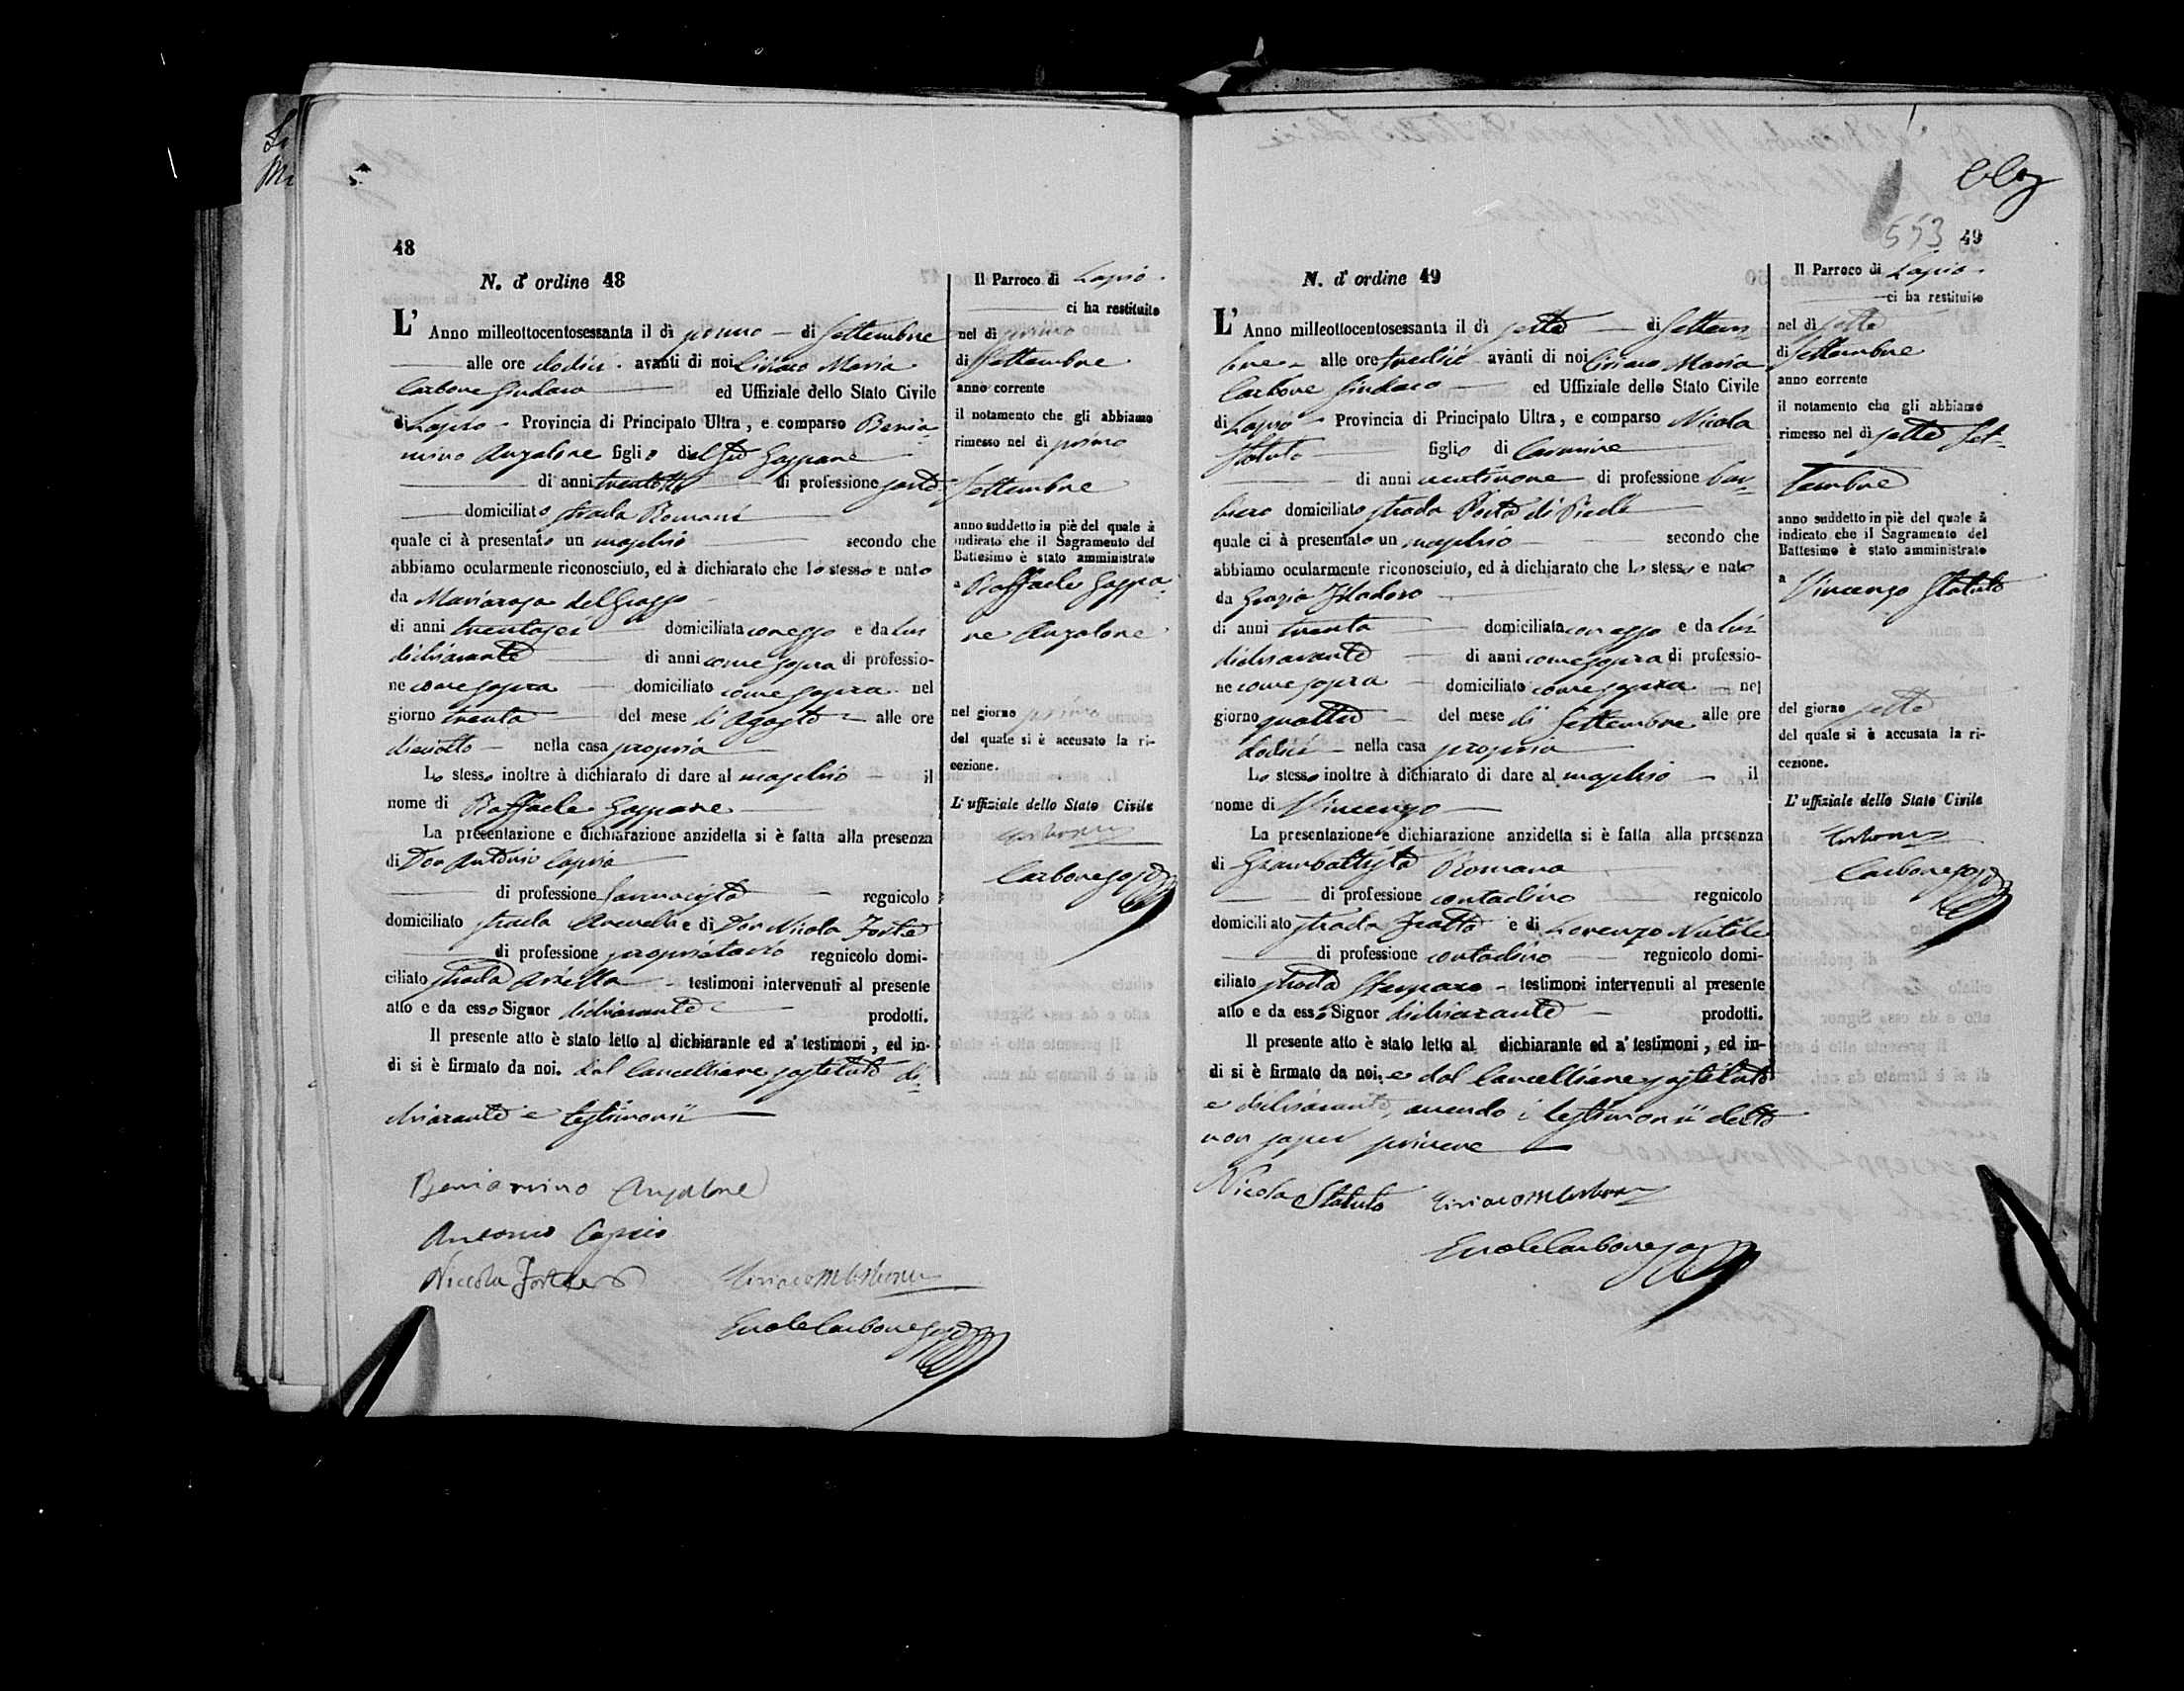 48
N. d' ordine 48
L' Anno milleottocentosessanta il dì primo di Settembre
alle ore dodici avanti di noi Ciriaco Maria
Carbone Sindaco ed Uffiziale dello Stato Civile
di Lapio Provincia di Principato Ultra, e comparso Benia-
mino Anzalone figlio del fu Gaspare
di anni trentotto di professione sarto
domiciliato strada Romani
quale ci à presentato un maschio secondo che
abbiamo ocularmente riconosciuto, ed à dichiarato che lo stesso e nato
da Mariarosa del Grosso
di anni trentasei domiciliata con esso e da lui
dichiarante di anni come sopra di professio-
ne come sopra domiciliato come sopra nel
giorno trenta del mese di Agosto alle ore
diciotto nella casa propria
Lo stesso inoltre à dichiarato di dare al maschio il
nome di Raffaele Gaspare
La presentazione e dichiarazione anzidetta si è fatta alla presenza
di Don Antonio Capria
di professione farmacista regnicolo
domiciliato strada e di Don Nicola Forte
di professione proprietario regnicolo domi-
ciliato strada testimoni intervenuti al presente
atto e da esso Signor dichiarante prodotti.
Il presente atto è stato letto al dichiarante ed a' testimoni, ed in-
di si è firmato da noi. dal Cancelliere sostituto di-
chiarante e testimonii
Beniamino Anzalone
Antonio
Niccola Forte
Ciriaco M Carbone
Carbone
Il Parroco di Lapio
ci ha restituito
nel dì primo
di Settembre
anno corrente
il notamento che gli abbiamo
rimesso nel dì primo
Settembre
anno suddetto in piè del quale à
indicato che il Sagramento del
Battesimo è stato amministrato
a Raffaele Gaspa-
re Anzalone
nel giorno primo
del quale si è accusato la ri-
cezione.
L' uffiziale dello Stato Civile
Carbone
Carbone
553 49
N. d' ordine 49
L' Anno milleottocentosessanta il dì sette di Settem-
bre alle ore tredici avanti di noi Ciriaco Maria
Carbone Sindaco ed Uffiziale dello Stato Civile
di Lapio Provincia di Principato Ultra, e comparso Nicola
Statuto figlio di Carmine
di anni ventinove di professione bar-
biere domiciliato strada
quale ci à presentato un maschio secondo che
abbiamo ocularmente riconosciuto, ed à dichiarato che lo stesso e nato
da Grazia
di anni trenta domiciliata con esso e da lui
dichiarante di anni come sopra di professio-
ne come sopra domiciliato come sopra nel
giorno quattro del mese di Settembre alle ore
dodici nella casa propria
Lo stesso inoltre à dichiarato di dare al maschio il
nome di Vincenzo
La presentazione e dichiarazione anzidetta si è fatta alla presenza
di Giambattista Romano
di professione contadino regnicolo
domiciliato strada e di Lorenzo
di professione contadino regnicolo domi-
ciliato strada testimoni intervenuti al presente
atto e da esso Signor dichiarante prodotti.
Il presente atto è stato letto al dichiarante ed a' testimoni, ed in-
di si è firmato da noi, e dal Cancelliere sostituto
e dichiarante, avendo i testimonii detto
non saper scrivere
Nicola Statuto Ciriaco M Carbone
Carbone
Il Parroco di Lapio
ci ha restituito
nel dì sette
di Settembre
anno corrente
il notamento che gli abbiamo
rimesso nel dì sette Set-
tembre
anno suddetto in piè del quale à
indicato che il Sagramento del
Battesimo è stato amministrato
a Vincenzo Statuto
del giorno sette
del quale si è accusata la ri-
cezione.
L' uffiziale dello Stato Civile
Carbone
Carbone